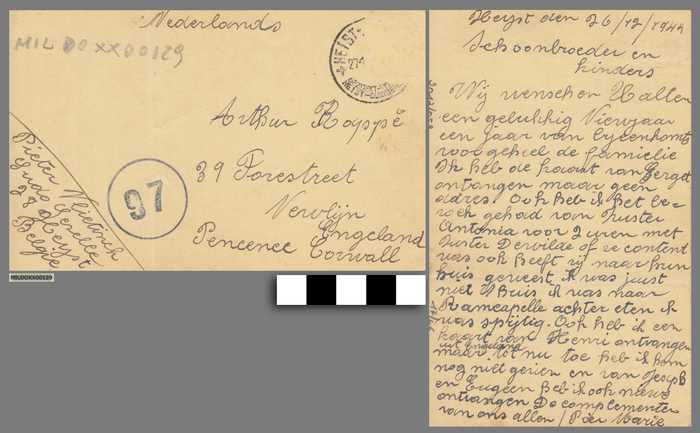 Nederlands
MIL DO XX00129
HEIST
Arthur Royppé
39 Forestreet
Newlijn
Engeland
Pencence Corwall
97
Pieter Vlietinck
Guido Gezelle
23 Heyst
Belgie
MILDOXX00129
Heyst den 26/12/1944
Schoonbroeder en
kinders
Wij wenschen U allen
een gelukkig Niewjaar
en een jaar van byeenkomst
voor geheel de famielie
Ik heb de kaart van Berget
ontvangen maar geen
adres. Ook heb ik het be-
zoek gehad van Zuster
Antonia voor 2 uren met
Zuster Dervilze of ze content
was ook heeft zij naar hun
huis geweest ik was juist
niet t'Huis ik was naar
Ramscapelle achter eten ik
was spijtig. Ook heb ik een
kaart van Henri ontvangen
uit Engeland
maar tot nu toe heb ik hem
nog niet gezien en van Joseph
en Eugeen heb ik ook nieuws
ontvangen De complementen
van ons allen / Pier Marie